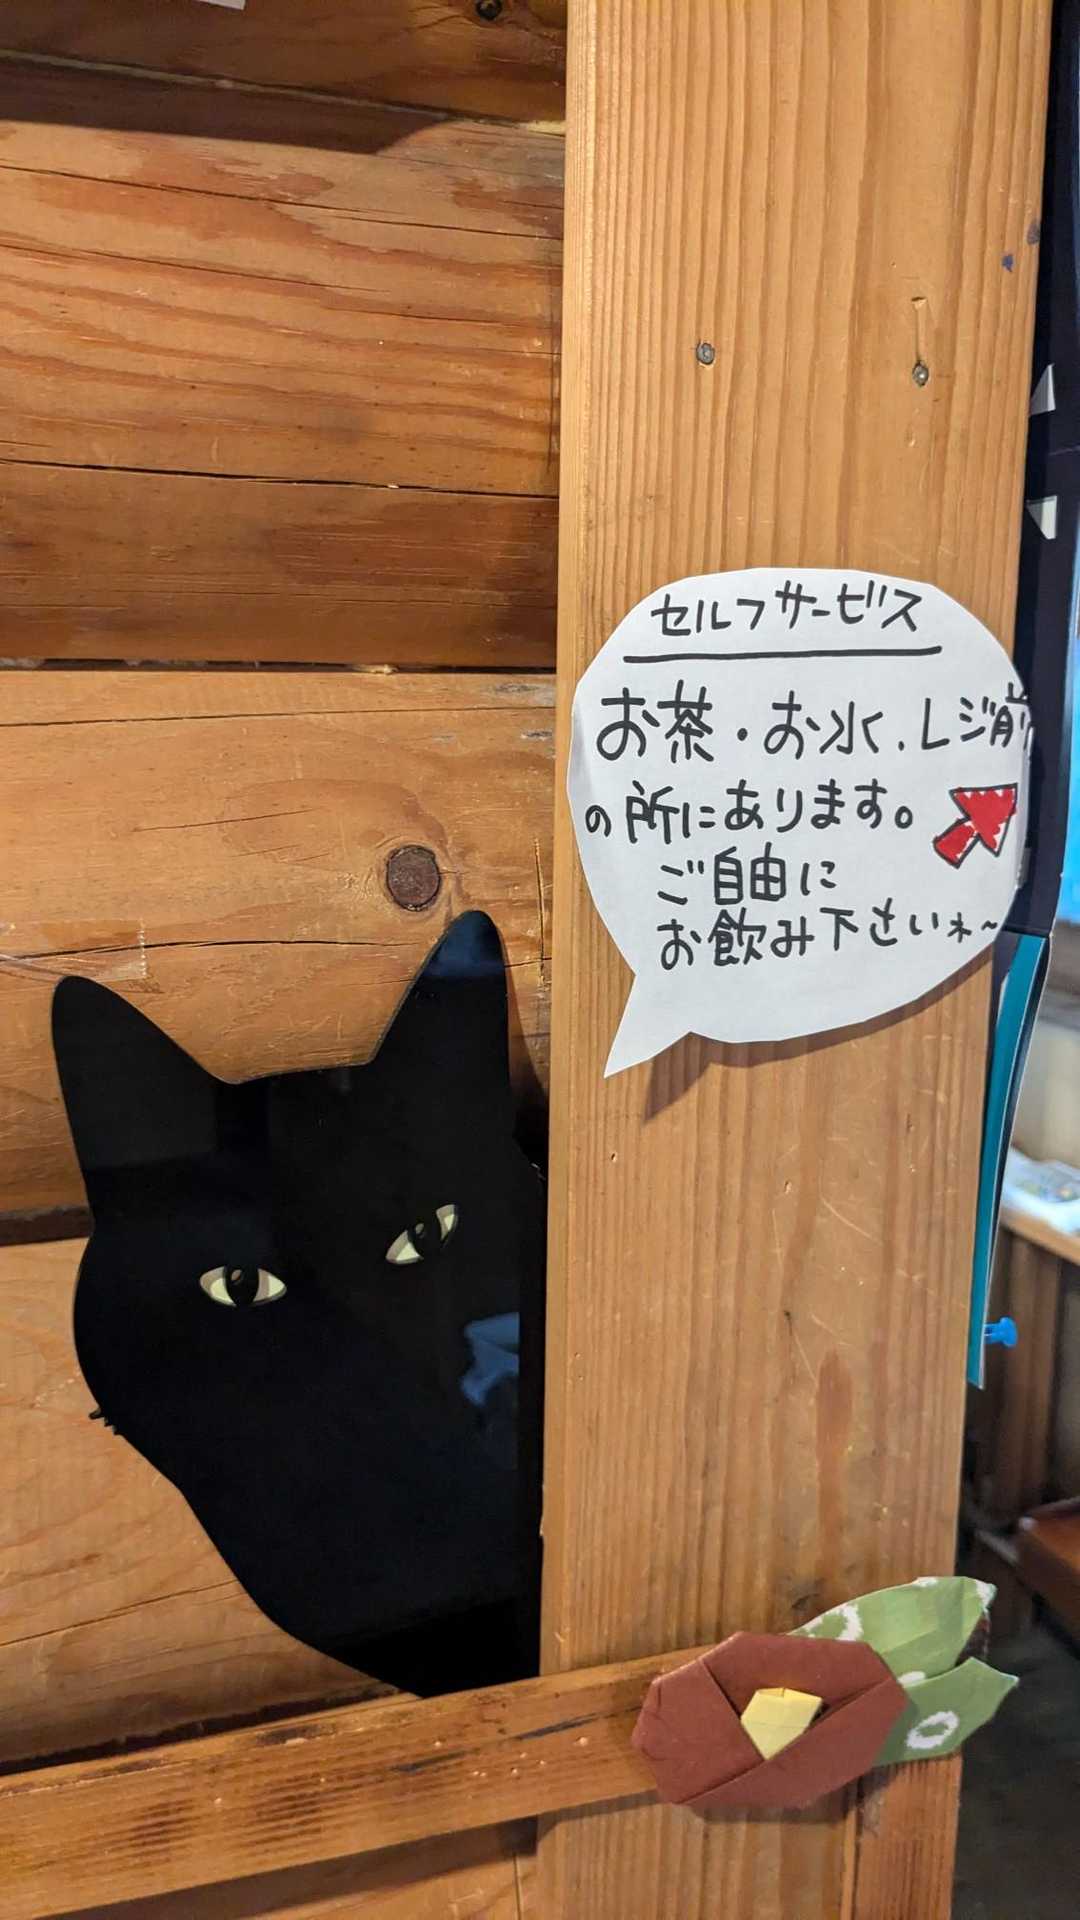 セルフサービス
お茶・お水、レジ前
の所にあります。
ご自由に
お飲み下さいネ~